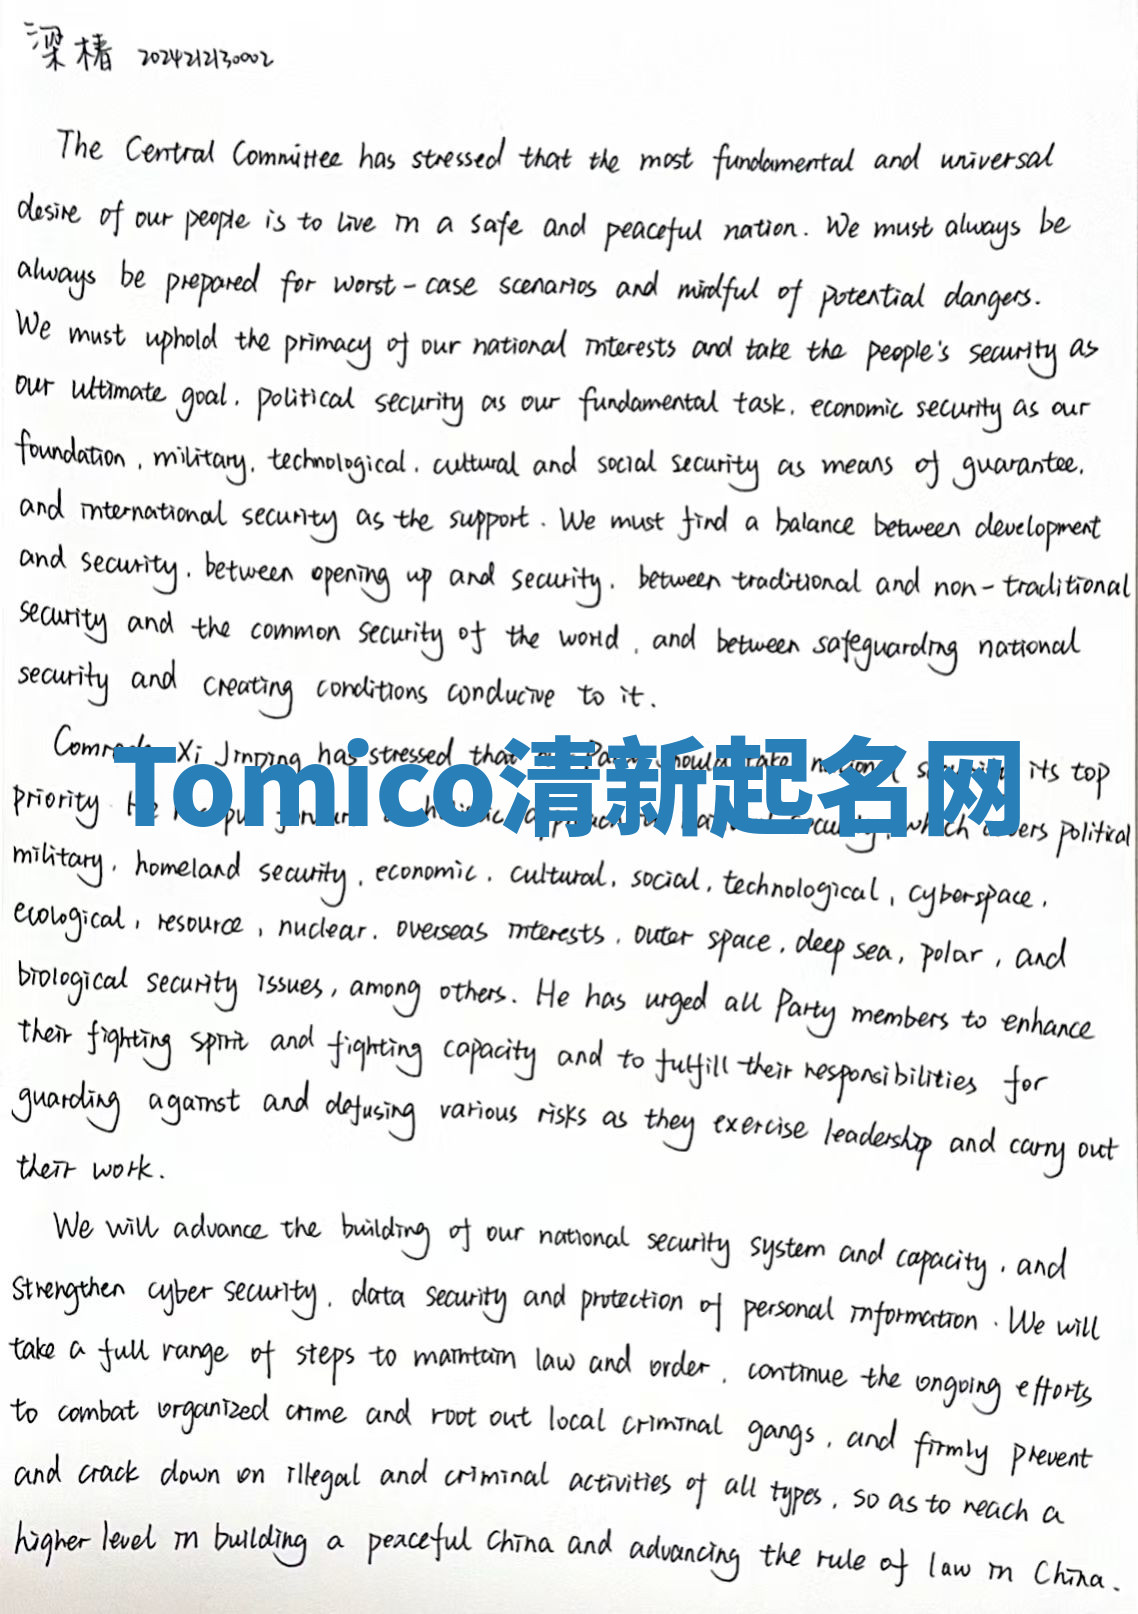 梁椿 2024212130002
The Central Committee has stressed that the most fundamental and universal
desire of our people is to live in a safe and peaceful nation. We must always be
always be prepared for worst-case scenarios and mindful of potential dangers.
We must uphold the primacy of our national interests and take the people's security as
our ultimate goal, political security as our fundamental task, economic security as our
foundation, military, technological, cultural and social security as means of guarantee,
and international security as the support. We must find a balance between development
and security, between opening up and security, between traditional and non-traditional
security and the common security of the world, and between safeguarding national
security and creating conditions conducive to it.
Xi Jinping has stressed that its top
Tomico清新起名网
priority He which political
military, homeland security, economic, cultural, social, technological, cyberspace,
ecological, resource, nuclear, overseas interests, outer space, deep sea, polar, and
biological security issues, among others. He has urged all Party members to enhance
their fighting spirit and fighting capacity and to fulfill their responsibilities for
guarding against and defusing various risks as they exercise leadership and carry out
their work.
We will advance the building of our national security system and capacity, and
strengthen cyber security, data security and protection of personal information. We will
take a full range of steps to maintain law and order, continue the ongoing efforts
to combat organized crime and root out local criminal gangs, and firmly prevent
and crack down on illegal and criminal activities of all types, so as to reach a
higher level in building a peaceful China and advancing the rule of law in China.